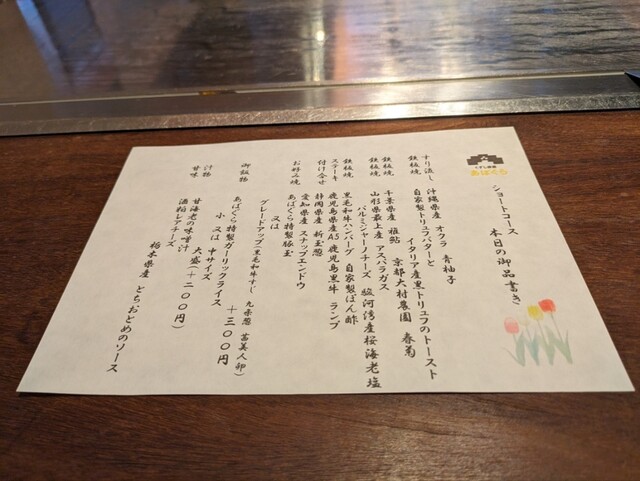 くずし鉄板
あばぐら
ショートコース 本日の御品書き
すり流し 沖縄県産 オクラ 青柚子
鉄板焼 自家製トリュフバターと
イタリア産黒トリュフのトースト
鉄板焼 千葉県産 稚鮎 京都大村農園 春菊
鉄板焼 山形県最上産 アスパラガス
パルミジャーノチーズ 駿河湾産桜海老塩
鉄板焼 黒毛和牛ハンバーグ 自家製ぽん酢
ステーキ 鹿児島県産A5 鹿児島黒牛 ランプ
付け合せ 静岡県産 新玉葱
愛知県産 スナップエンドウ
お好み焼 あばぐら特製豚玉
又は
グレードアップ(黒毛和牛すじ 九条葱 苗美人卵)
+三００円
御飯物 あばぐら特製ガーリックライス
小 又は 中サイズ
大盛(+二００円)
汁物 甘海老の味噌汁
甘味 酒粕レアチーズ
栃木県産 とちおとめのソース